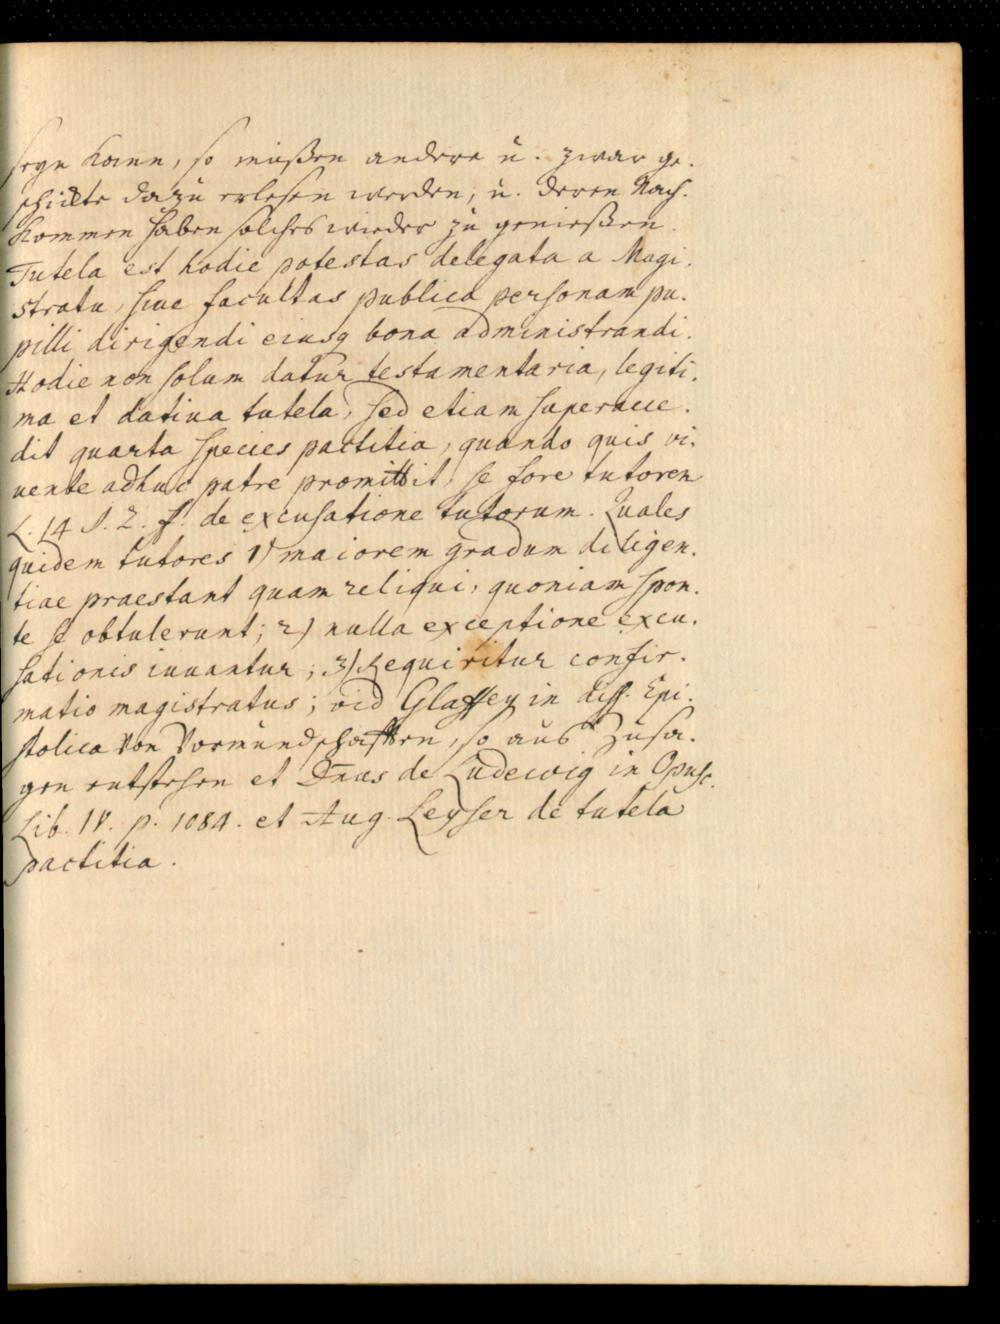 seyn kann, so müßen andere u. zwar ge-
schickte dazu erlesen werden, u. deren Nach-
kommen haben solches wieder zu genießen.
Tutela est hodie potestas delegata a Magi-
stratu, sive facultas publica personam pu-
pilli dirigendi eiusq bona administrandi.
Hodie non solum datur testamentaria, legiti-
ma et dativa tutela, sed etiam superacce-
dit quarta species pactitia, quando quis vi-
vente adhuc patre promittit, se fore tutorem
L. 14 §. 2. ff. de excusatione tutorum. Quales
quidem tutores 1) maiorem gradum diligen-
tiae praestant quam reliqui, quoniam spon-
te se obtulerunt; 2) nulla exceptione excu-
sationis iuvantur; 3) Requiritur confir-
matio magistratus; vid Glaffey in diss. Epi-
stolica von Vormundschafften, so aus Zusa-
gen entstehen et Dnus de Ludewig in Opusc.
Lib. IV. p. 1084. et Aug. Leyser de tutela
pactitia.